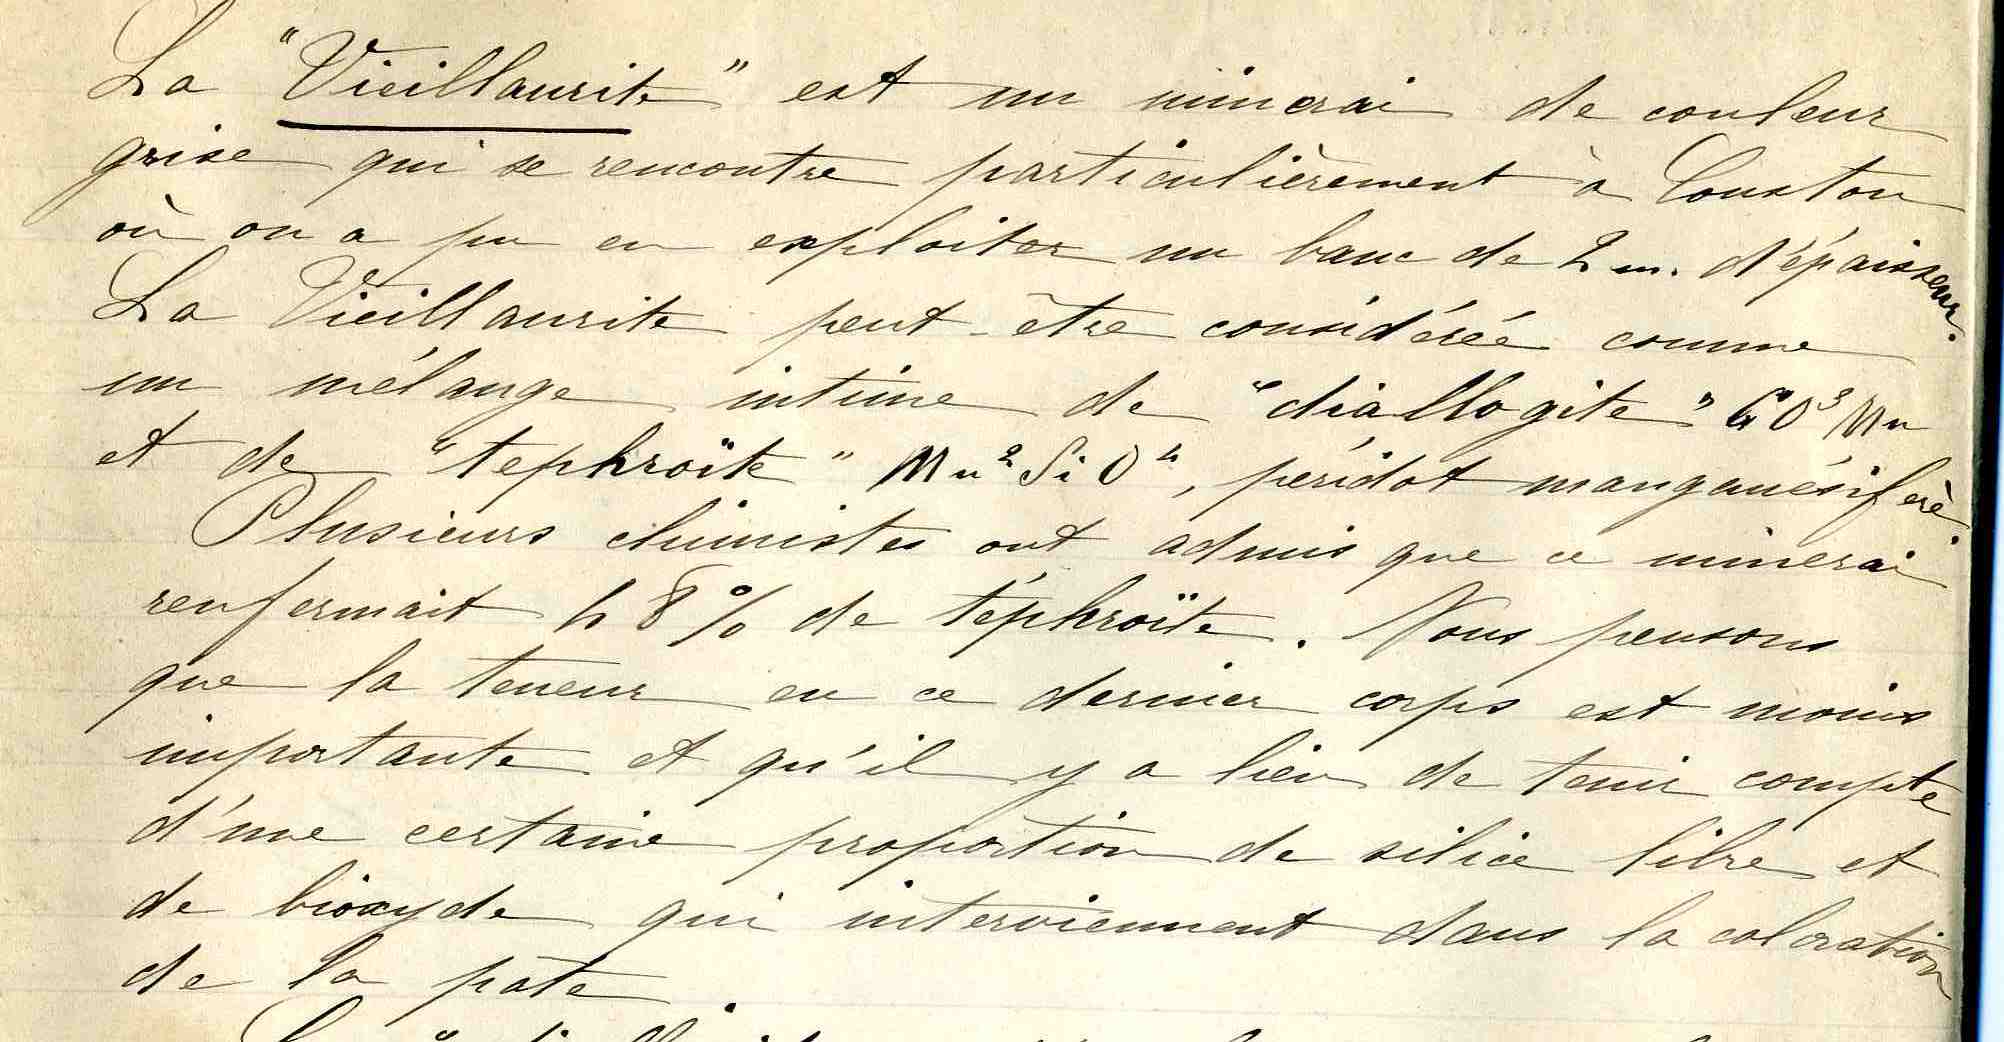 La "Vieillaurite" est un minerai de couleur
grise qui se rencontre particulièrement à Couston
où on a pu en exploiter un banc de 2 m. d'épaisseur.
La Vieillaurite peut-être considérée comme
un mélange intime de "diallogite" CO³Mn
et de "tephroïte" Mn²SiO⁴, péridot manganésifère.
Plusieurs chimistes ont admis que ce minerai
renfermait 48% de téphroïte. Nous pensons
que la teneur en ce dernier corps est moins
importante et qu'il y a lieu de tenir compte
d'une certaine proportion de silice libre et
de bioxyde qui interviennent dans la coloration
de la pate.